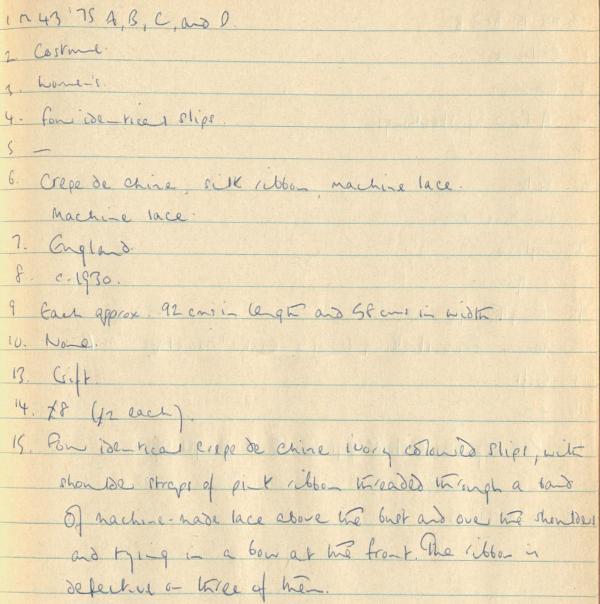 1 M 43 '75 A, B, C, and D.
2 Costume.
3. Women's.
4. Four identical slips.
5 —
6. Crepe de chine, silk ribbon, machine lace.
Machine lace.
7. England.
8. c.1930.
9 Each approx. 92 cms in length and 58 cms in width.
10. None.
13. Gift.
14. £8 (£2 each).
15. Four identical crepe de chine ivory coloured slips, with
shoulder straps of pink ribbon threaded through a band
of machine-made lace above the bust and over the shoulders
and tying in a bow at the front. The ribbon is
defective on three of them.